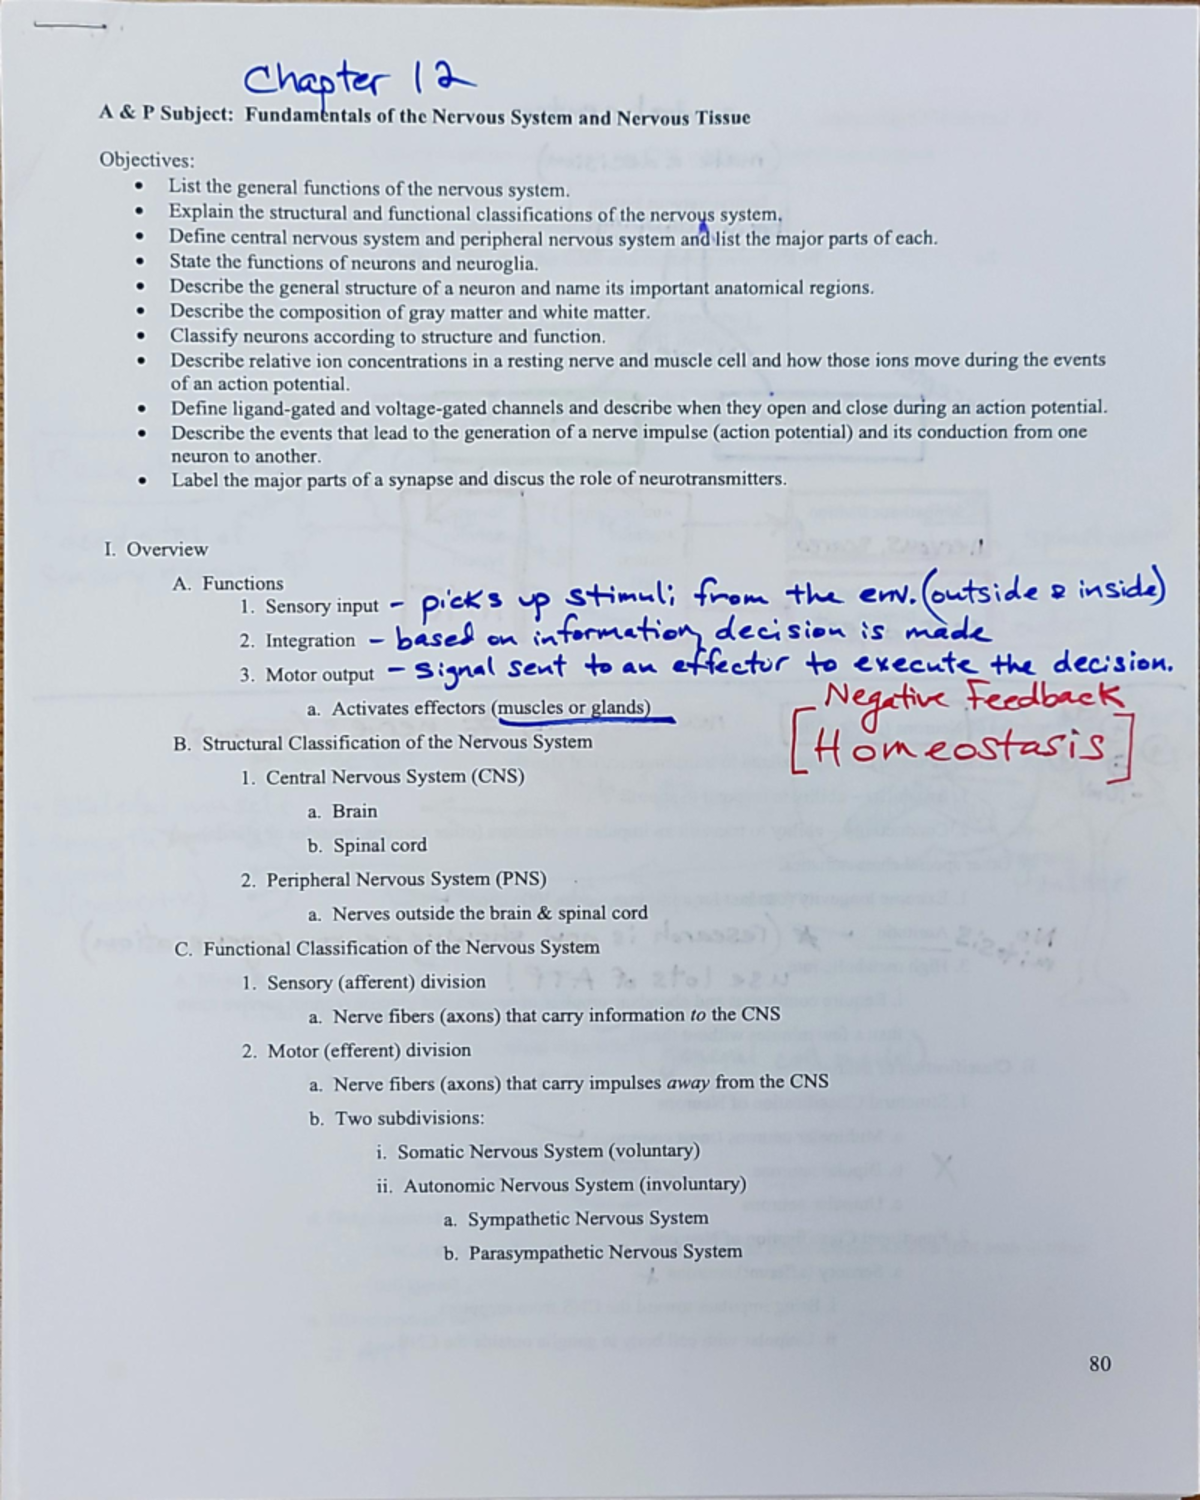 Chapter 12
A & P Subject: Fundamentals of the Nervous System and Nervous Tissue
Objectives:
• List the general functions of the nervous system.
• Explain the structural and functional classifications of the nervous system,
• Define central nervous system and peripheral nervous system and list the major parts of each.
• State the functions of neurons and neuroglia.
• Describe the general structure of a neuron and name its important anatomical regions.
• Describe the composition of gray matter and white matter.
• Classify neurons according to structure and function.
• Describe relative ion concentrations in a resting nerve and muscle cell and how those ions move during the events
of an action potential.
• Define ligand-gated and voltage-gated channels and describe when they open and close during an action potential.
• Describe the events that lead to the generation of a nerve impulse (action potential) and its conduction from one
neuron to another.
• Label the major parts of a synapse and discus the role of neurotransmitters.
I. Overview
A. Functions
1. Sensory input - picks up stimuli from the env. (outside & inside)
2. Integration - based on information, decision is made
3. Motor output - signal sent to an effector to execute the decision.
a. Activates effectors (muscles or glands)
Negative Feedback
[Homeostasis]
B. Structural Classification of the Nervous System
1. Central Nervous System (CNS)
a. Brain
b. Spinal cord
2. Peripheral Nervous System (PNS)
a. Nerves outside the brain & spinal cord
C. Functional Classification of the Nervous System
1. Sensory (afferent) division
a. Nerve fibers (axons) that carry information to the CNS
2. Motor (efferent) division
a. Nerve fibers (axons) that carry impulses away from the CNS
b. Two subdivisions:
i. Somatic Nervous System (voluntary)
ii. Autonomic Nervous System (involuntary)
a. Sympathetic Nervous System
b. Parasympathetic Nervous System
80